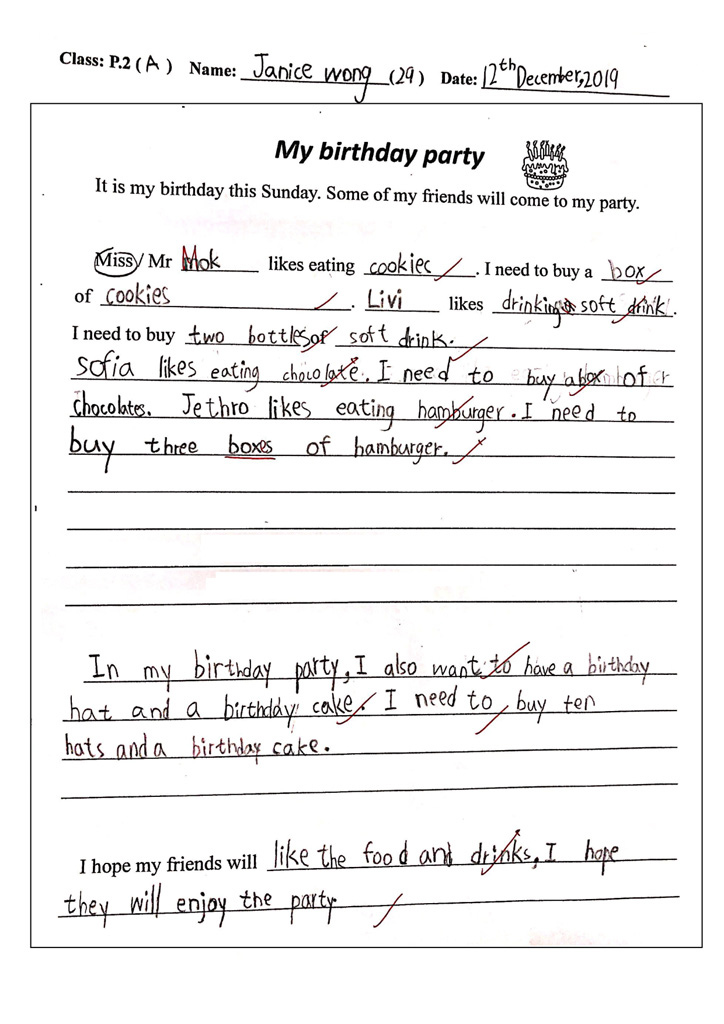 Class: P.2 (A) Name: Janice wong (29) Date: 12th December, 2019
My birthday party
It is my birthday this Sunday. Some of my friends will come to my party.
Miss / Mr Mok likes eating cookies. I need to buy a box
of cookies. Livi likes drinking soft drink.
I need to buy two bottles of soft drink.
Sofia likes eating chocolate. I need to buy a box of
chocolates. Jethro likes eating hamburger. I need to
buy three boxes of hamburger.
In my birthday party, I also want to have a birthday
hat and a birthday cake. I need to buy ten
hats and a birthday cake.
I hope my friends will like the food and drinks, I hope
they will enjoy the party.